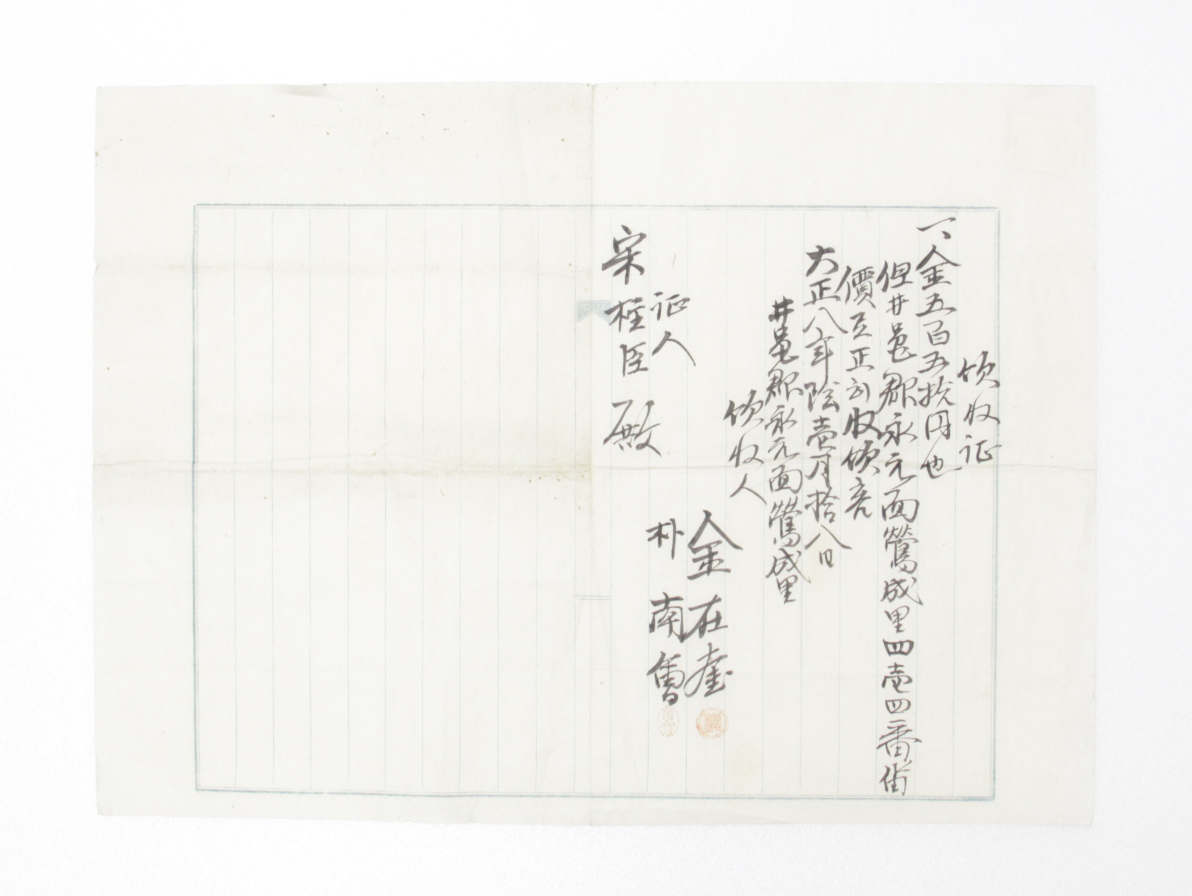 領収証
一、金五百五拾円也
但井邑郡永元面鶯成里四壱四番
價 正 收領
大正八年陰壱月拾八日
井邑郡永元面鶯成里
領收人 金在奎
証人 朴南
宋 臣 殿